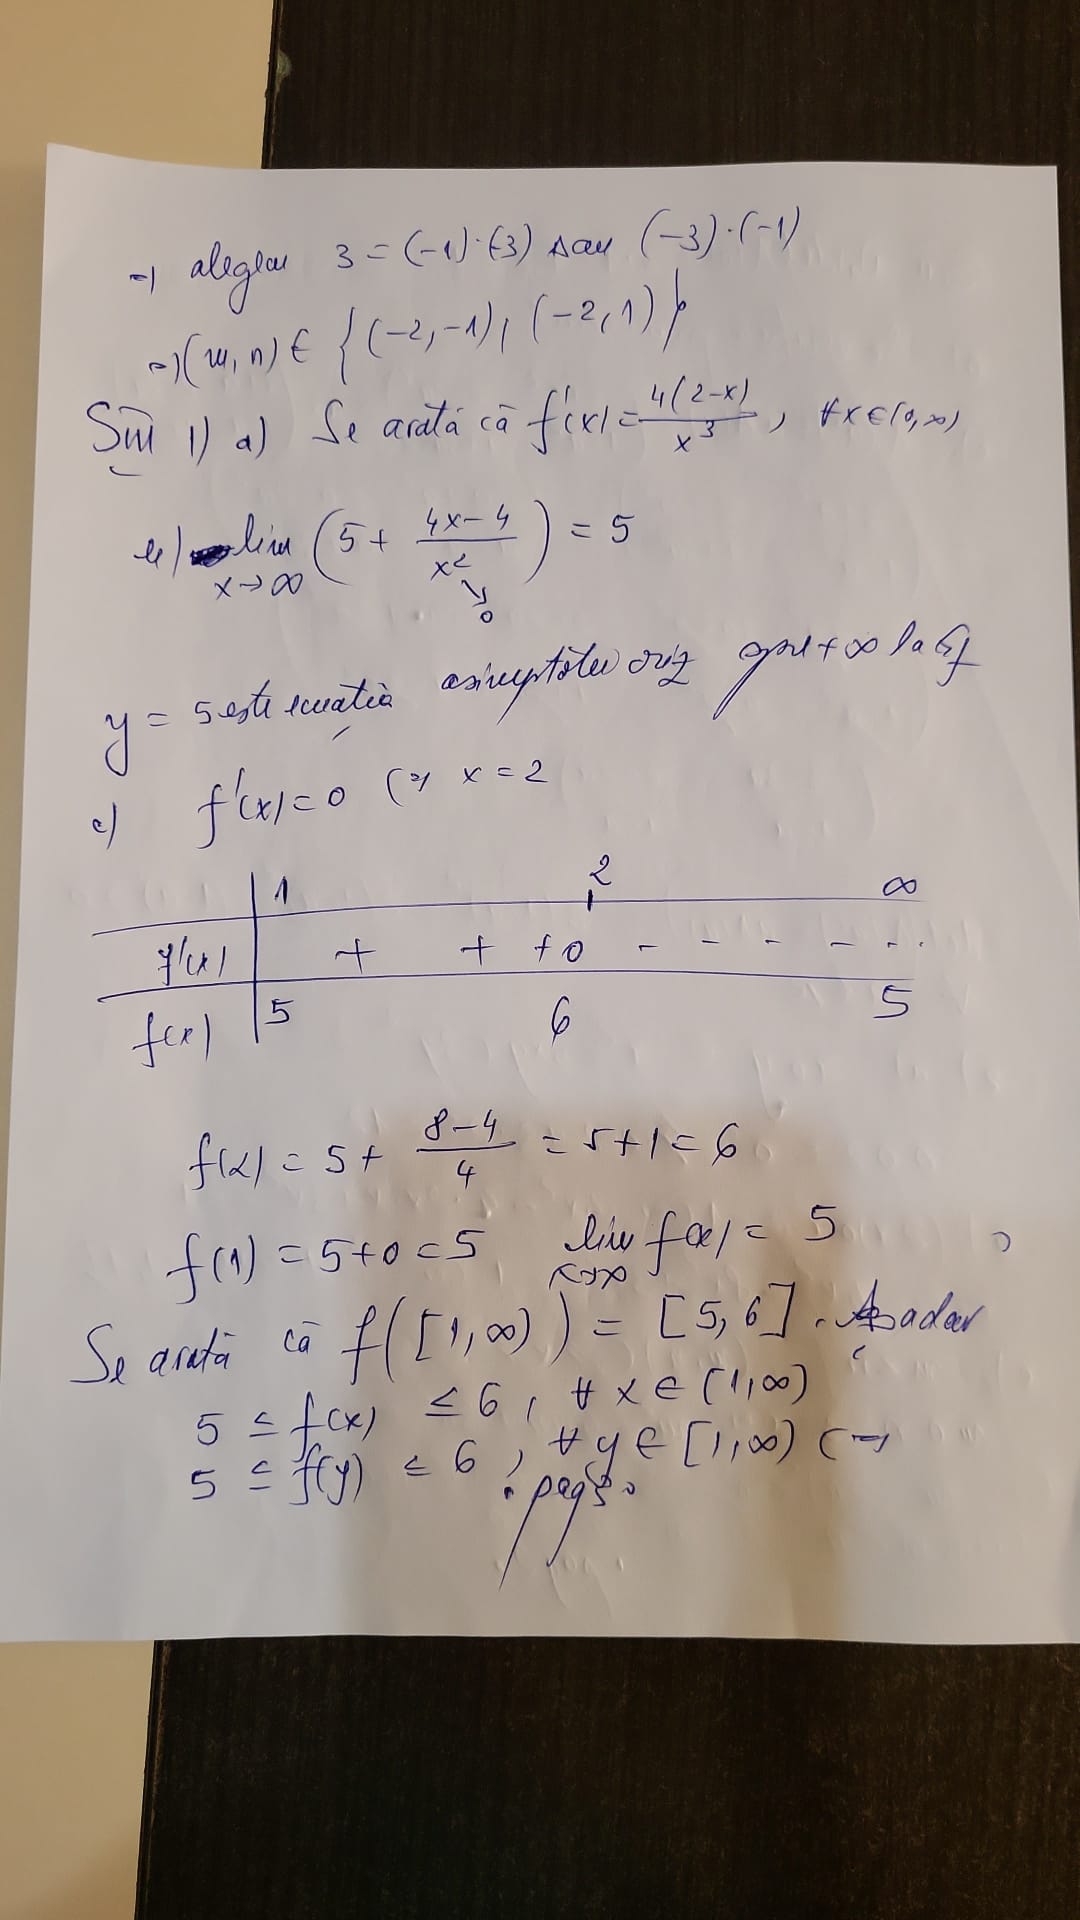 =) alegem 3 = (-1)·(-3) sau (-3)·(-1)
=) (m,n) ∈ {(-2,-1), (-2,1)}
SIII 1) a) Se arată că f'(x) = 4(2-x)/x³, ∀x∈(0,∞)
b) lim x→∞ (5 + (4x-4)/x²) = 5
↘0
y = 5 este ecuația asimptotei oriz spre +∞ la Gf
c) f'(x) = 0 (=) x = 2
1 2 ∞
f'(x) + + + 0 - - - - - ..
f(x) 5 6 5
f(2) = 5 + (8-4)/4 = 5+1 = 6
f(1) = 5+0 = 5 lim x→∞ f(x) = 5
Se arată că f([1,∞)) = [5,6]. Așadar
5 ≤ f(x) ≤ 6, ∀ x ∈ [1,∞)
5 ≤ f(y) ≤ 6, ∀ y ∈ [1,∞) (=)